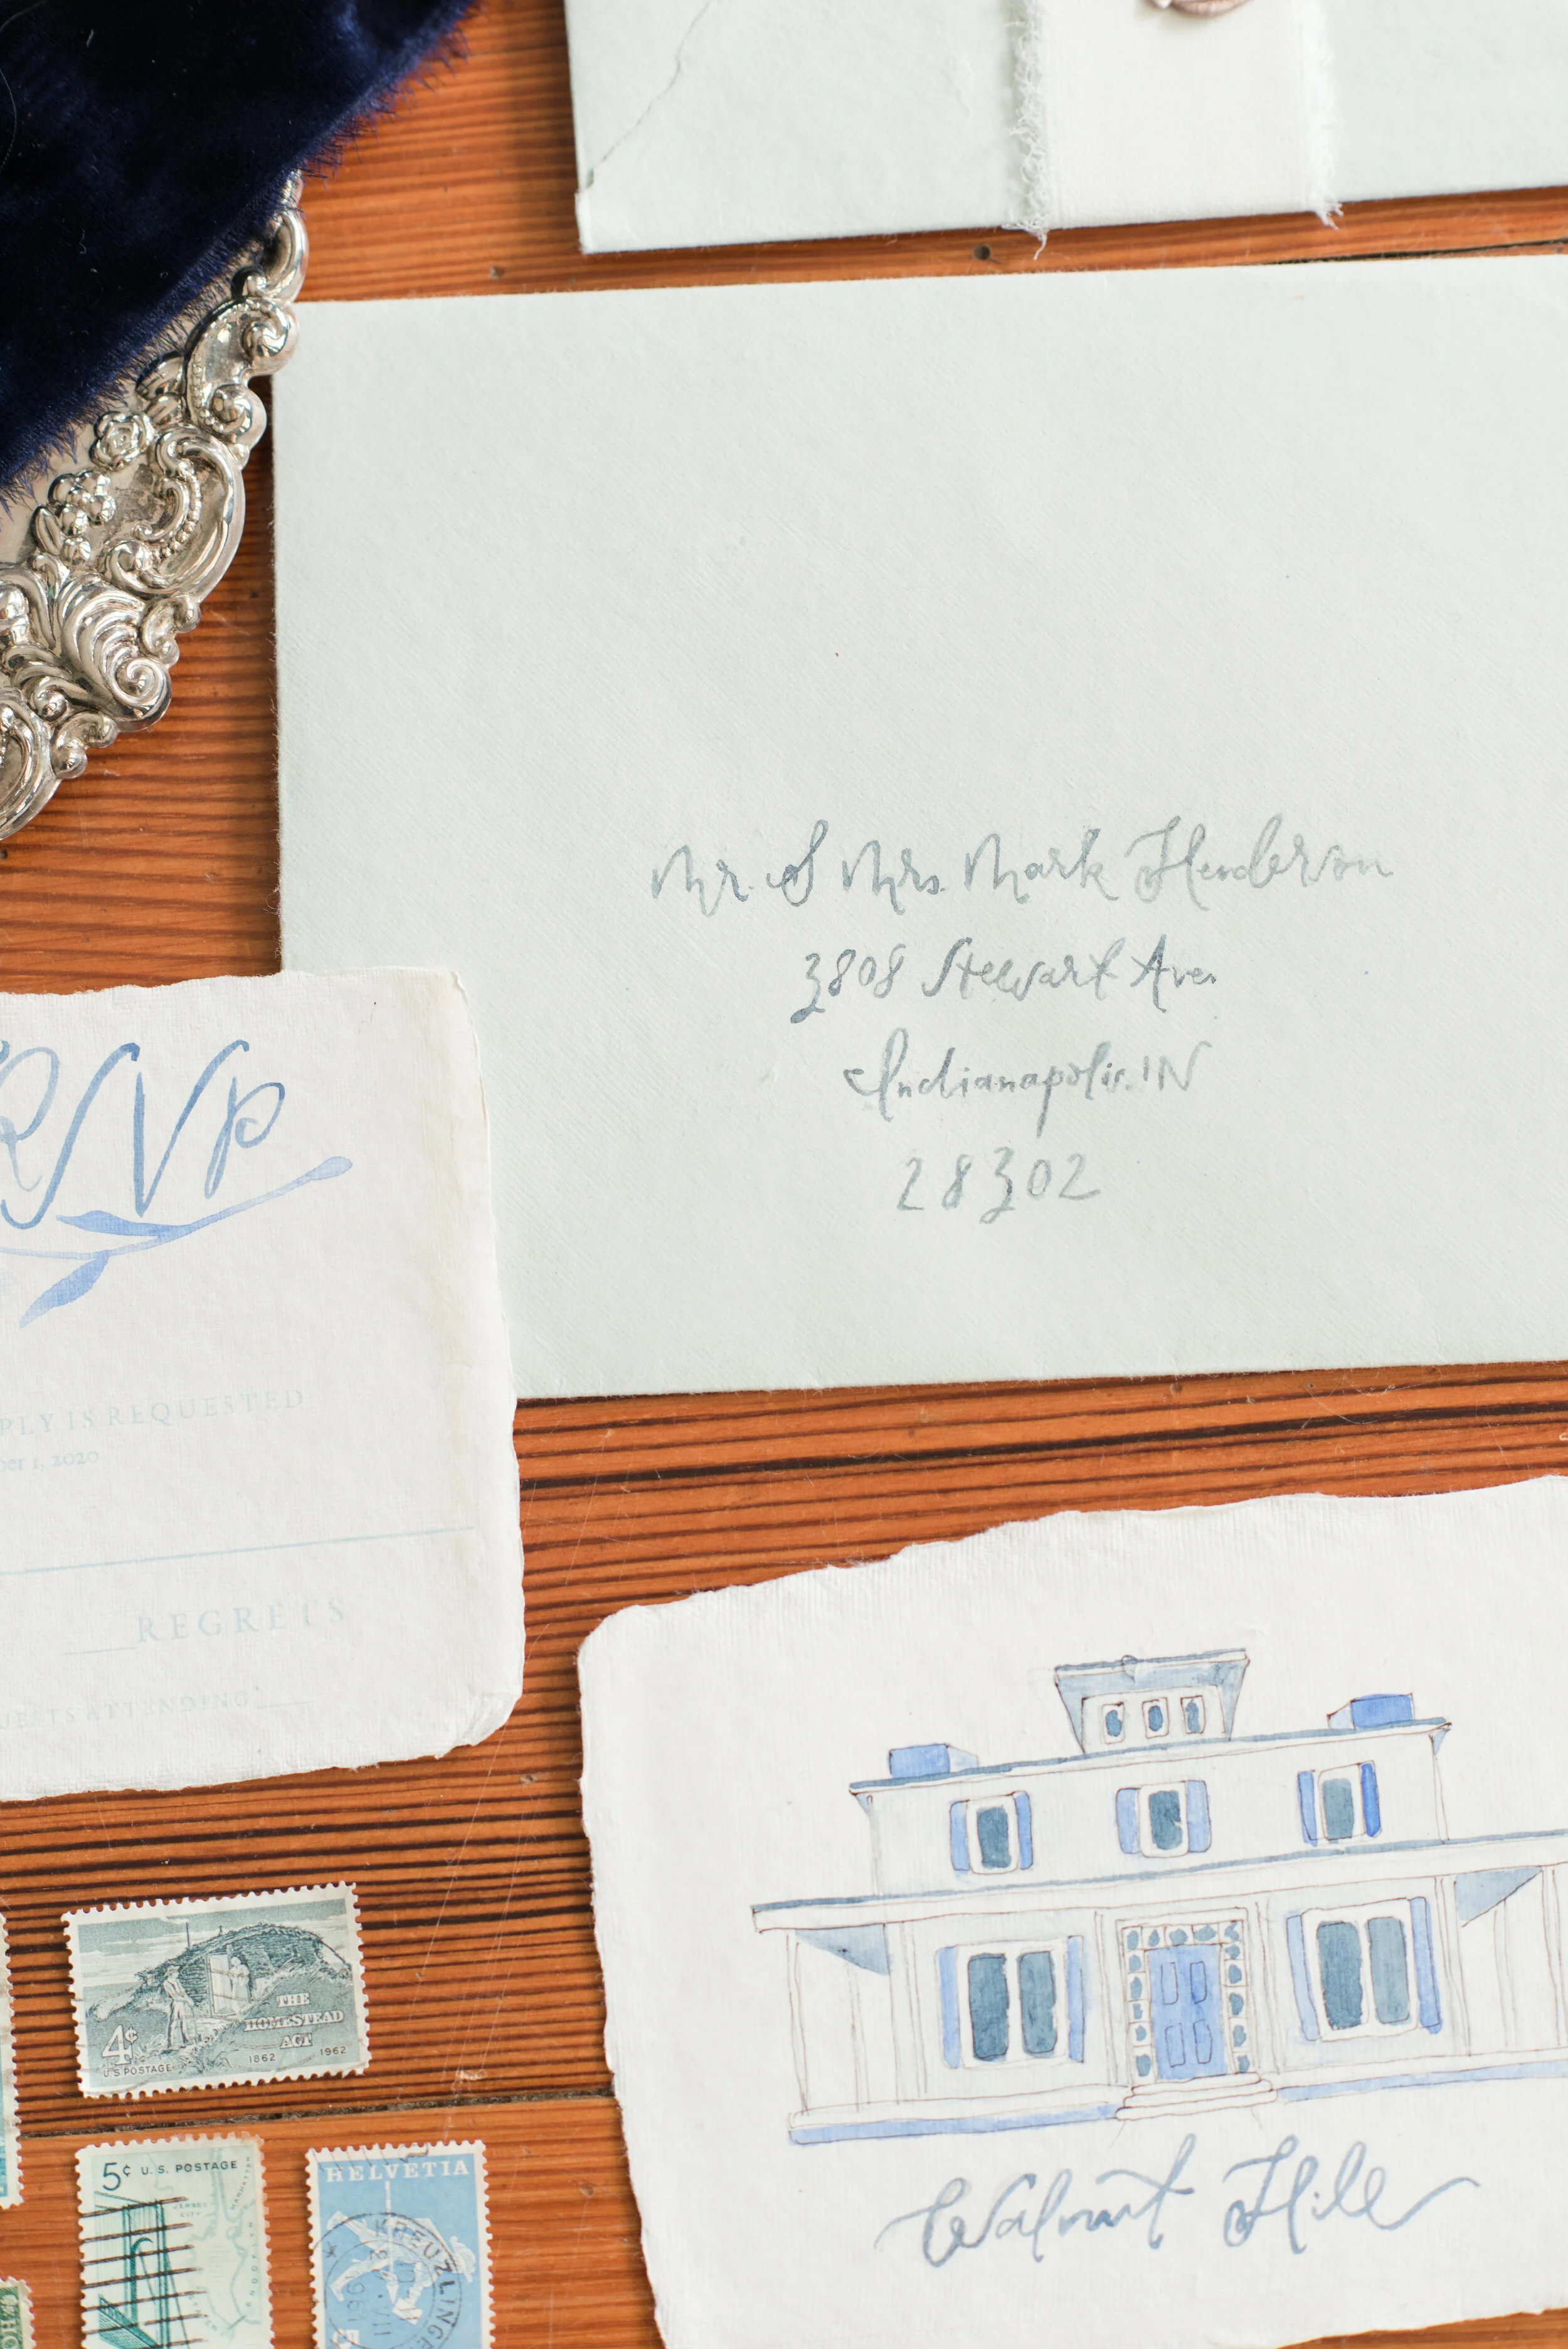 Mr. & Mrs. Mark Henderson
3808 Stewart Ave.
Indianapolis. IN
28302
RSVP
PLY IS REQUESTED
ber 1, 2020
REGRETS
UESTS ATTENDING:
THE
HOMESTEAD
ACT
4¢
U.S. POSTAGE
1862 1962
5¢ U.S. POSTAGE
JERSEY
CITY
MANHATTAN
HELVETIA
KREUZLINGE
Walnut Hill